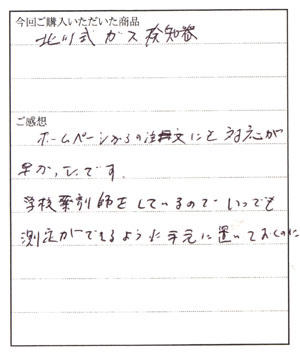 今回ご購入いただいた商品
北川式ガス検知器
ご感想
ホームページからの注文にも対応が
早かったです。
学校薬剤師をしているので いつでも
測定ができるように手元に置いておくのに